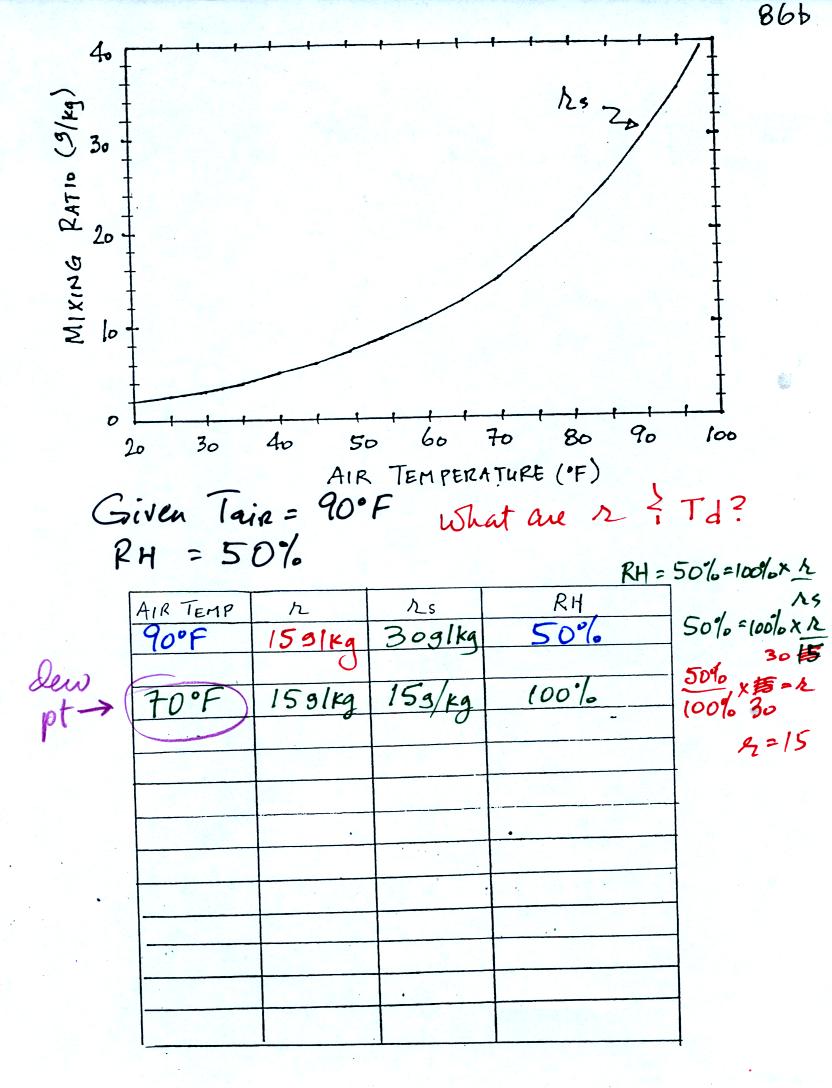 86b
40
30
20
10
0
MIXING RATIO (g/kg)
rs
20 30 40 50 60 70 80 90 100
AIR TEMPERATURE (°F)
Given Tair = 90°F
RH = 50%
What are r & Td?
RH = 50% = 100% x r
rs
50% = 100% x r
30 15
50% x 15 = r
100% 30
r = 15
AIR TEMP r rs RH
90°F 15g/kg 30g/kg 50%
dew
pt → 70°F 15g/kg 15g/kg 100%